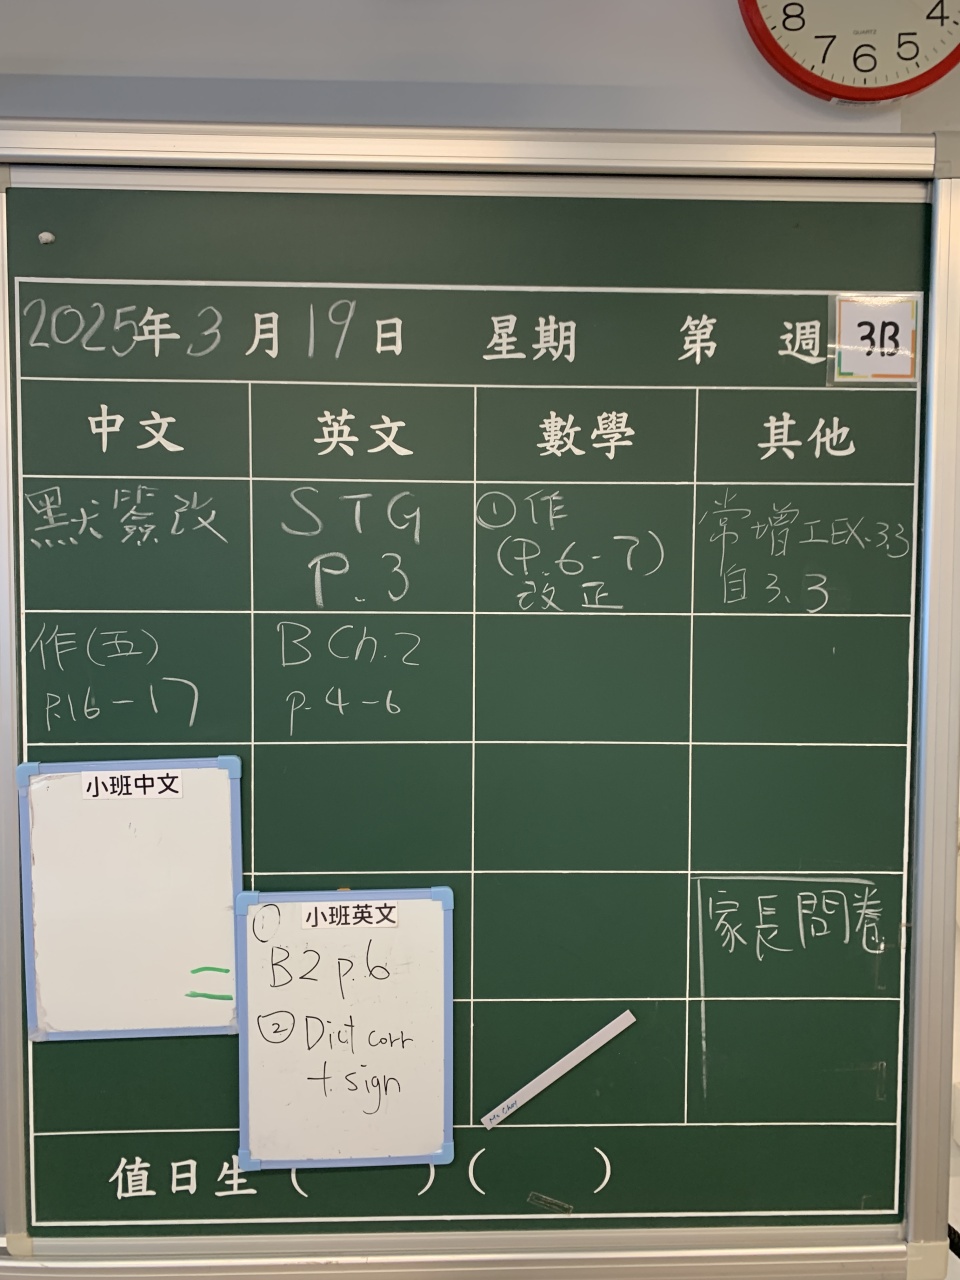 8
7
6
5
4
QUARTZ
2025年3月19日 星期 第 週 3B
中文 英文 數學 其他
默簽改
STG
P.3
①作
(P.6-7)
改正
常增工EX.3.3
自3.3
作(五)
p.16-17
B Ch.2
p.4-6
小班中文
小班英文
①
B2 p.6
② Dict corr
+ sign
家長問卷
值日生 ( ) ( )